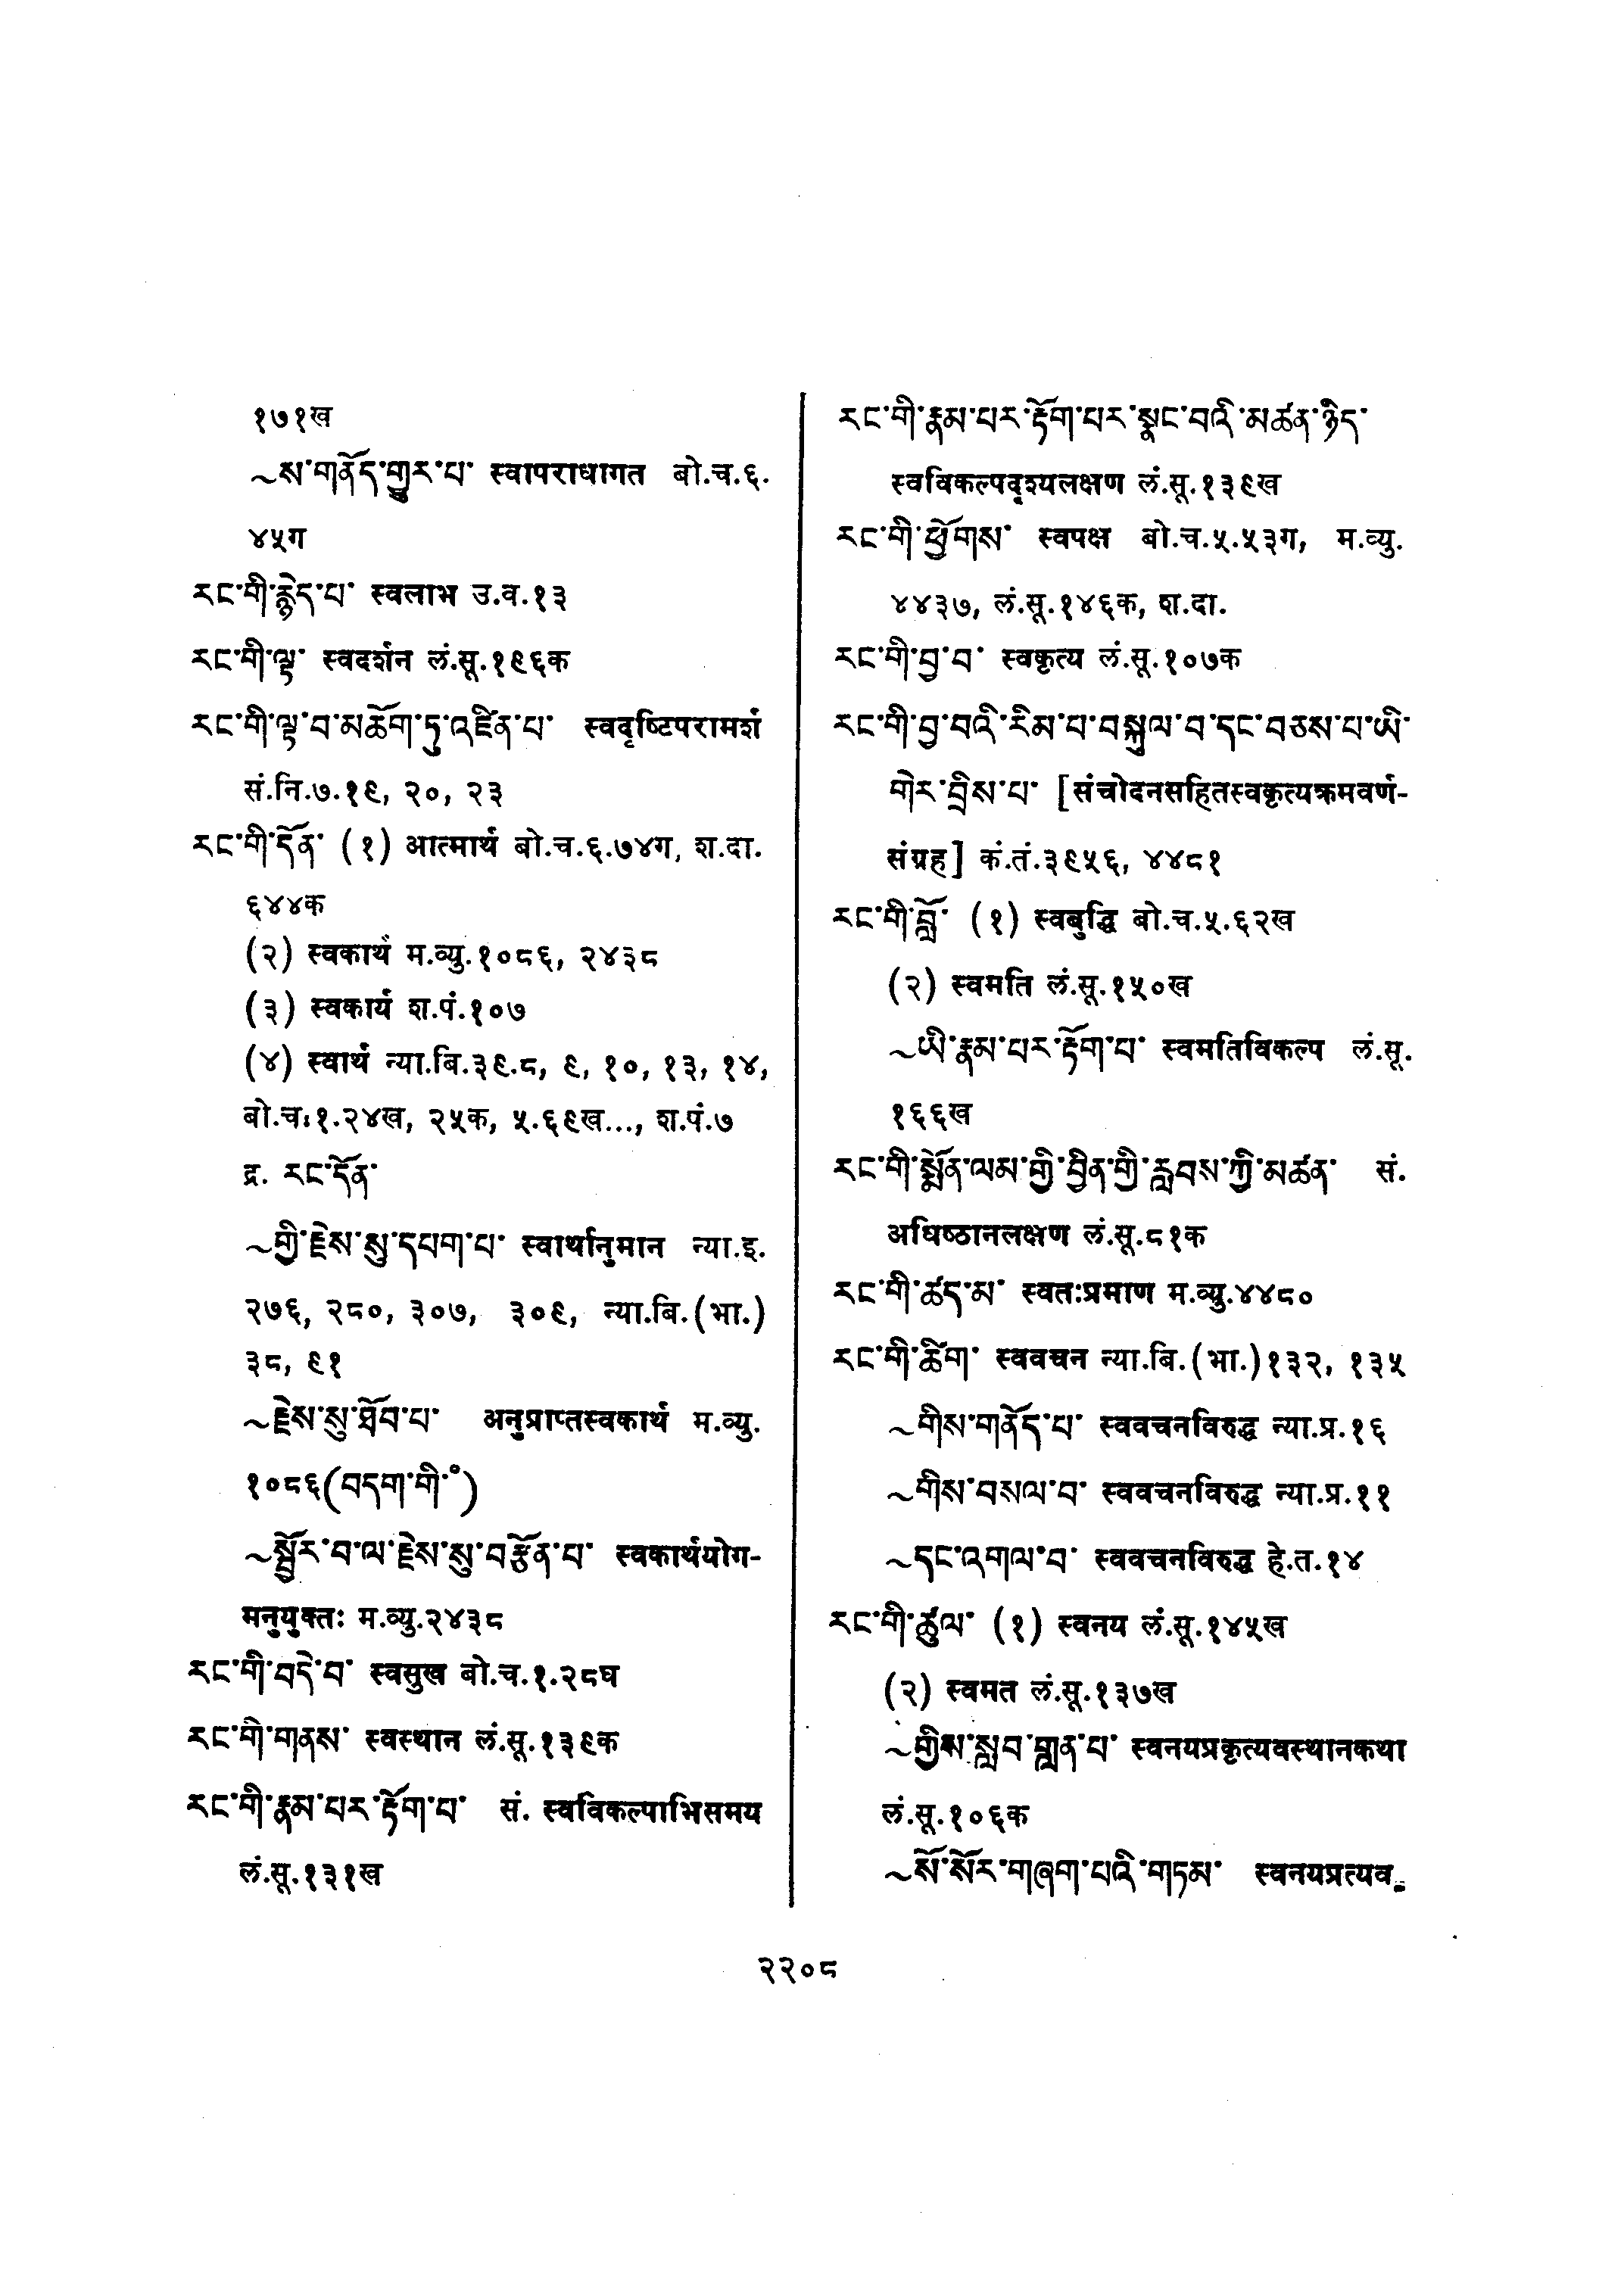 १७१ख
~ས་གནོད་གྱུར་པ་ स्वापराधागत बो.च.६.
४५ग
རང་གི་རྙེད་པ་ स्वलाभ उ.व.१३
རང་གི་ལྟ་ स्वदर्शन लं.सू.१९६क
རང་གི་ལྟ་བ་མཆོག་ཏུ་འཛིན་པ་ स्वदृष्टिपरामर्श
सं.नि.७.१९, २०, २३
རང་གི་དོན་ (१) आत्मार्थ बो.च.६.७४ग, श.दा.
६४४क
(२) स्वकार्थ म.व्यु.१०८६, २४३८
(३) स्वकार्य श.पं.१०७
(४) स्वार्थ न्या.बि.३९.८, ९, १०, १३, १४,
बो.च.१.२४ख, २५क, ५.६९ख..., श.पं.७
द्र. རང་དོན་
~གྱི་རྗེས་སུ་དཔག་པ་ स्वार्थानुमान न्या.इ.
२७६, २८०, ३०७, ३०९, न्या.बि.(भा.)
३८, ९१
~རྗེས་སུ་ཐོབ་པ་ अनुप्राप्तस्वकार्थ म.व्यु.
१०८६(བདག་གི་॰)
~སྦྱོར་བ་ལ་རྗེས་སུ་བརྩོན་པ་ स्वकार्थयोग-
मनुयुक्तः म.व्यु.२४३८
རང་གི་བདེ་བ་ स्वसुख बो.च.१.२८घ
རང་གི་གནས་ स्वस्थान लं.सू.१३९क
རང་གི་རྣམ་པར་རྟོག་པ་ सं. स्वविकल्पाभिसमय
लं.सू.१३१ख
རང་གི་རྣམ་པར་རྟོག་པར་སྣང་བའི་མཚན་ཉིད་
स्वविकल्पदृश्यलक्षण लं.सू.१३९ख
རང་གི་ཕྱོགས་ स्वपक्ष बो.च.५.५३ग, म.व्यु.
४४३७, लं.सू.१४६क, श.दा.
རང་གི་བྱ་བ་ स्वकृत्य लं.सू.१०७क
རང་གི་བྱ་བའི་རིམ་པ་བསྐུལ་བ་དང་བཅས་པ་ཡི་
གེར་བྲིས་པ་ [संचोदनसहितस्वकृत्यक्रमवर्ण-
संग्रह] कं.तं.३९५६, ४४८१
རང་གི་བློ་ (१) स्वबुद्धि बो.च.५.६२ख
(२) स्वमति लं.सू.१५०ख
~ཡི་རྣམ་པར་རྟོག་པ་ स्वमतिविकल्प लं.सू.
१६६ख
རང་གི་སྨོན་ལམ་གྱི་བྱིན་གྱི་རླབས་ཀྱི་མཚན་ सं.
अधिष्ठानलक्षण लं.सू.८१क
རང་གི་ཚད་མ་ स्वतःप्रमाण म.व्यु.४४८०
རང་གི་ཚིག་ स्ववचन न्या.बि.(भा.)१३२, १३५
~གིས་གནོད་པ་ स्ववचनविरुद्ध न्या.प्र.१६
~གིས་བསལ་བ་ स्ववचनविरुद्ध न्या.प्र.११
~དང་འགལ་བ་ स्ववचनविरुद्ध हे.त.१४
རང་གི་ཚུལ་ (१) स्वनय लं.सू.१४५ख
(२) स्वमत लं.सू.१३७ख
~གྱིས་སླབ་གླན་པ་ स्वनयप्रकृत्यवस्थानकथा
लं.सू.१०६क
~སོ་སོར་གཞག་པའི་གཏམ་ स्वनयप्रत्यव-
२२०८